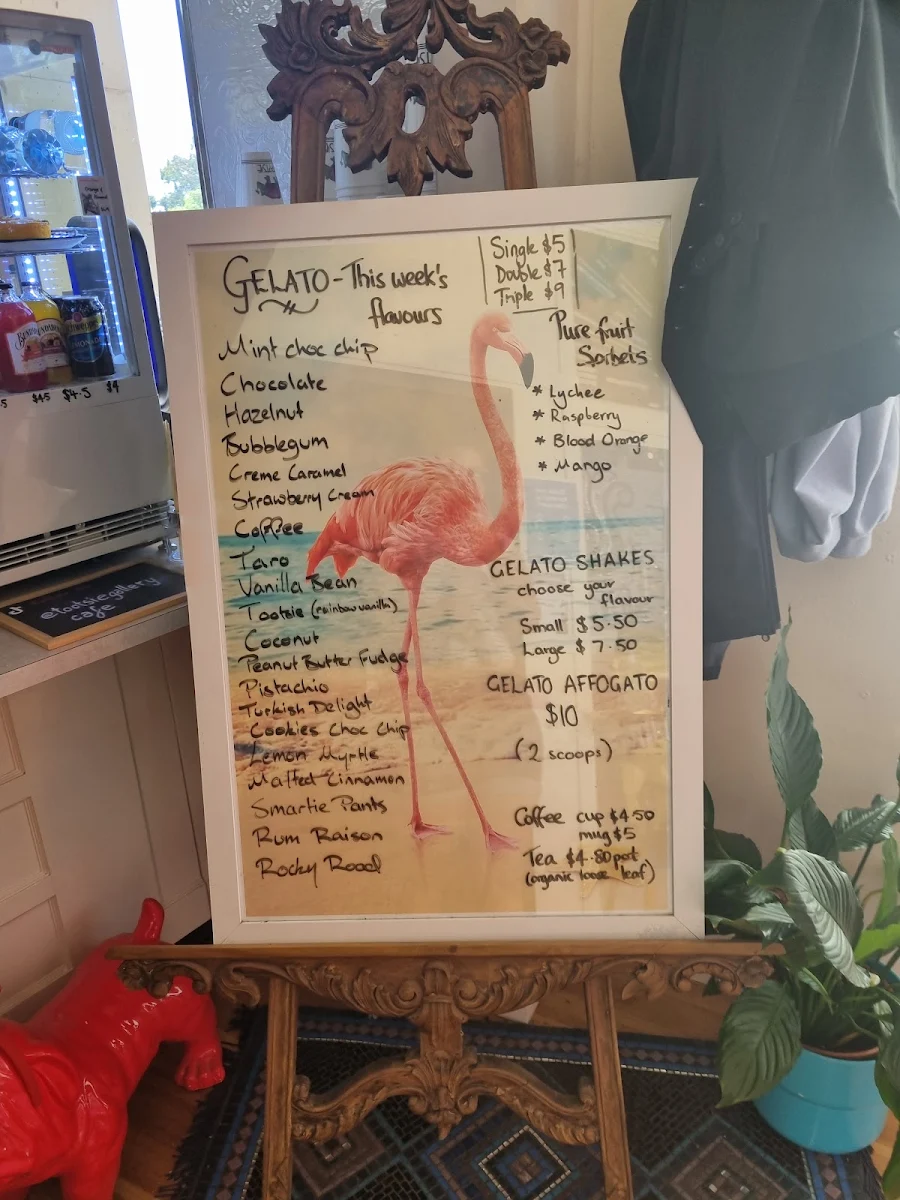 GELATO - This week's
flavours
Mint choc chip
Chocolate
Hazelnut
Bubblegum
Creme Caramel
Strawberry Cream
Coffee
Taro
Vanilla Bean
Tootsie (rainbow vanilla)
Coconut
Peanut Butter Fudge
Pistachio
Turkish Delight
Cookies Choc Chip
Lemon Myrtle
Malted Cinnamon
Smartie Pants
Rum Raison
Rocky Road
Single $5
Double $7
Triple $9
Pure fruit
Sorbets
* Lychee
* Raspberry
* Blood Orange
* Mango
GELATO SHAKES
choose your
flavour
Small $5.50
Large $7.50
GELATO AFFOGATO
$10
(2 scoops)
Coffee cup $4.50
mug $5
Tea $4.80 pot
(organic loose leaf)
$4.5 $4.5 $4
@tootsiegallery
cafe